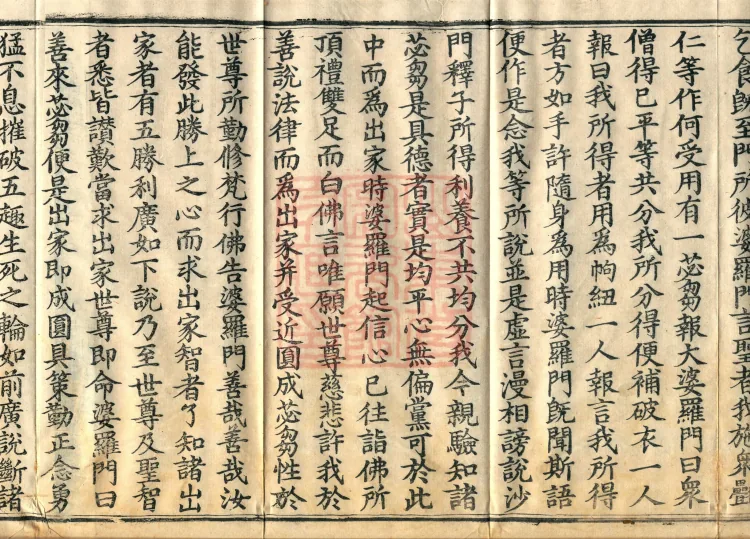 乞食旣至門所彼婆羅門言聖者我施衆疊
仁等作何受用有一苾芻報大婆羅門曰衆
僧得已平等共分我所分得便補破衣一人
報曰我所得者用爲紐一人報言我所得
者方如手許隨身爲用時婆羅門旣聞斯語
便作是念我等所說並是虛言漫相謗說沙
門釋子所得利養不共均分我今親驗知諸
苾芻是具德者實是均平心無偏黨可於此
中而爲出家時婆羅門起信心已往詣佛所
頂禮雙足而白佛言唯願世尊慈悲許我於
善說法律而爲出家并受近圓成苾芻性於
世尊所勤修梵行佛告婆羅門善哉善哉汝
能發此勝上之心而求出家智者了知諸出
家者有五勝利廣如下說乃至世尊及聖智
者悉皆讚歎當求出家世尊即命婆羅門曰
善來苾芻便是出家即成圓具策勤正念勇
猛不息摧破五趣生死之輪如前廣說斷諸